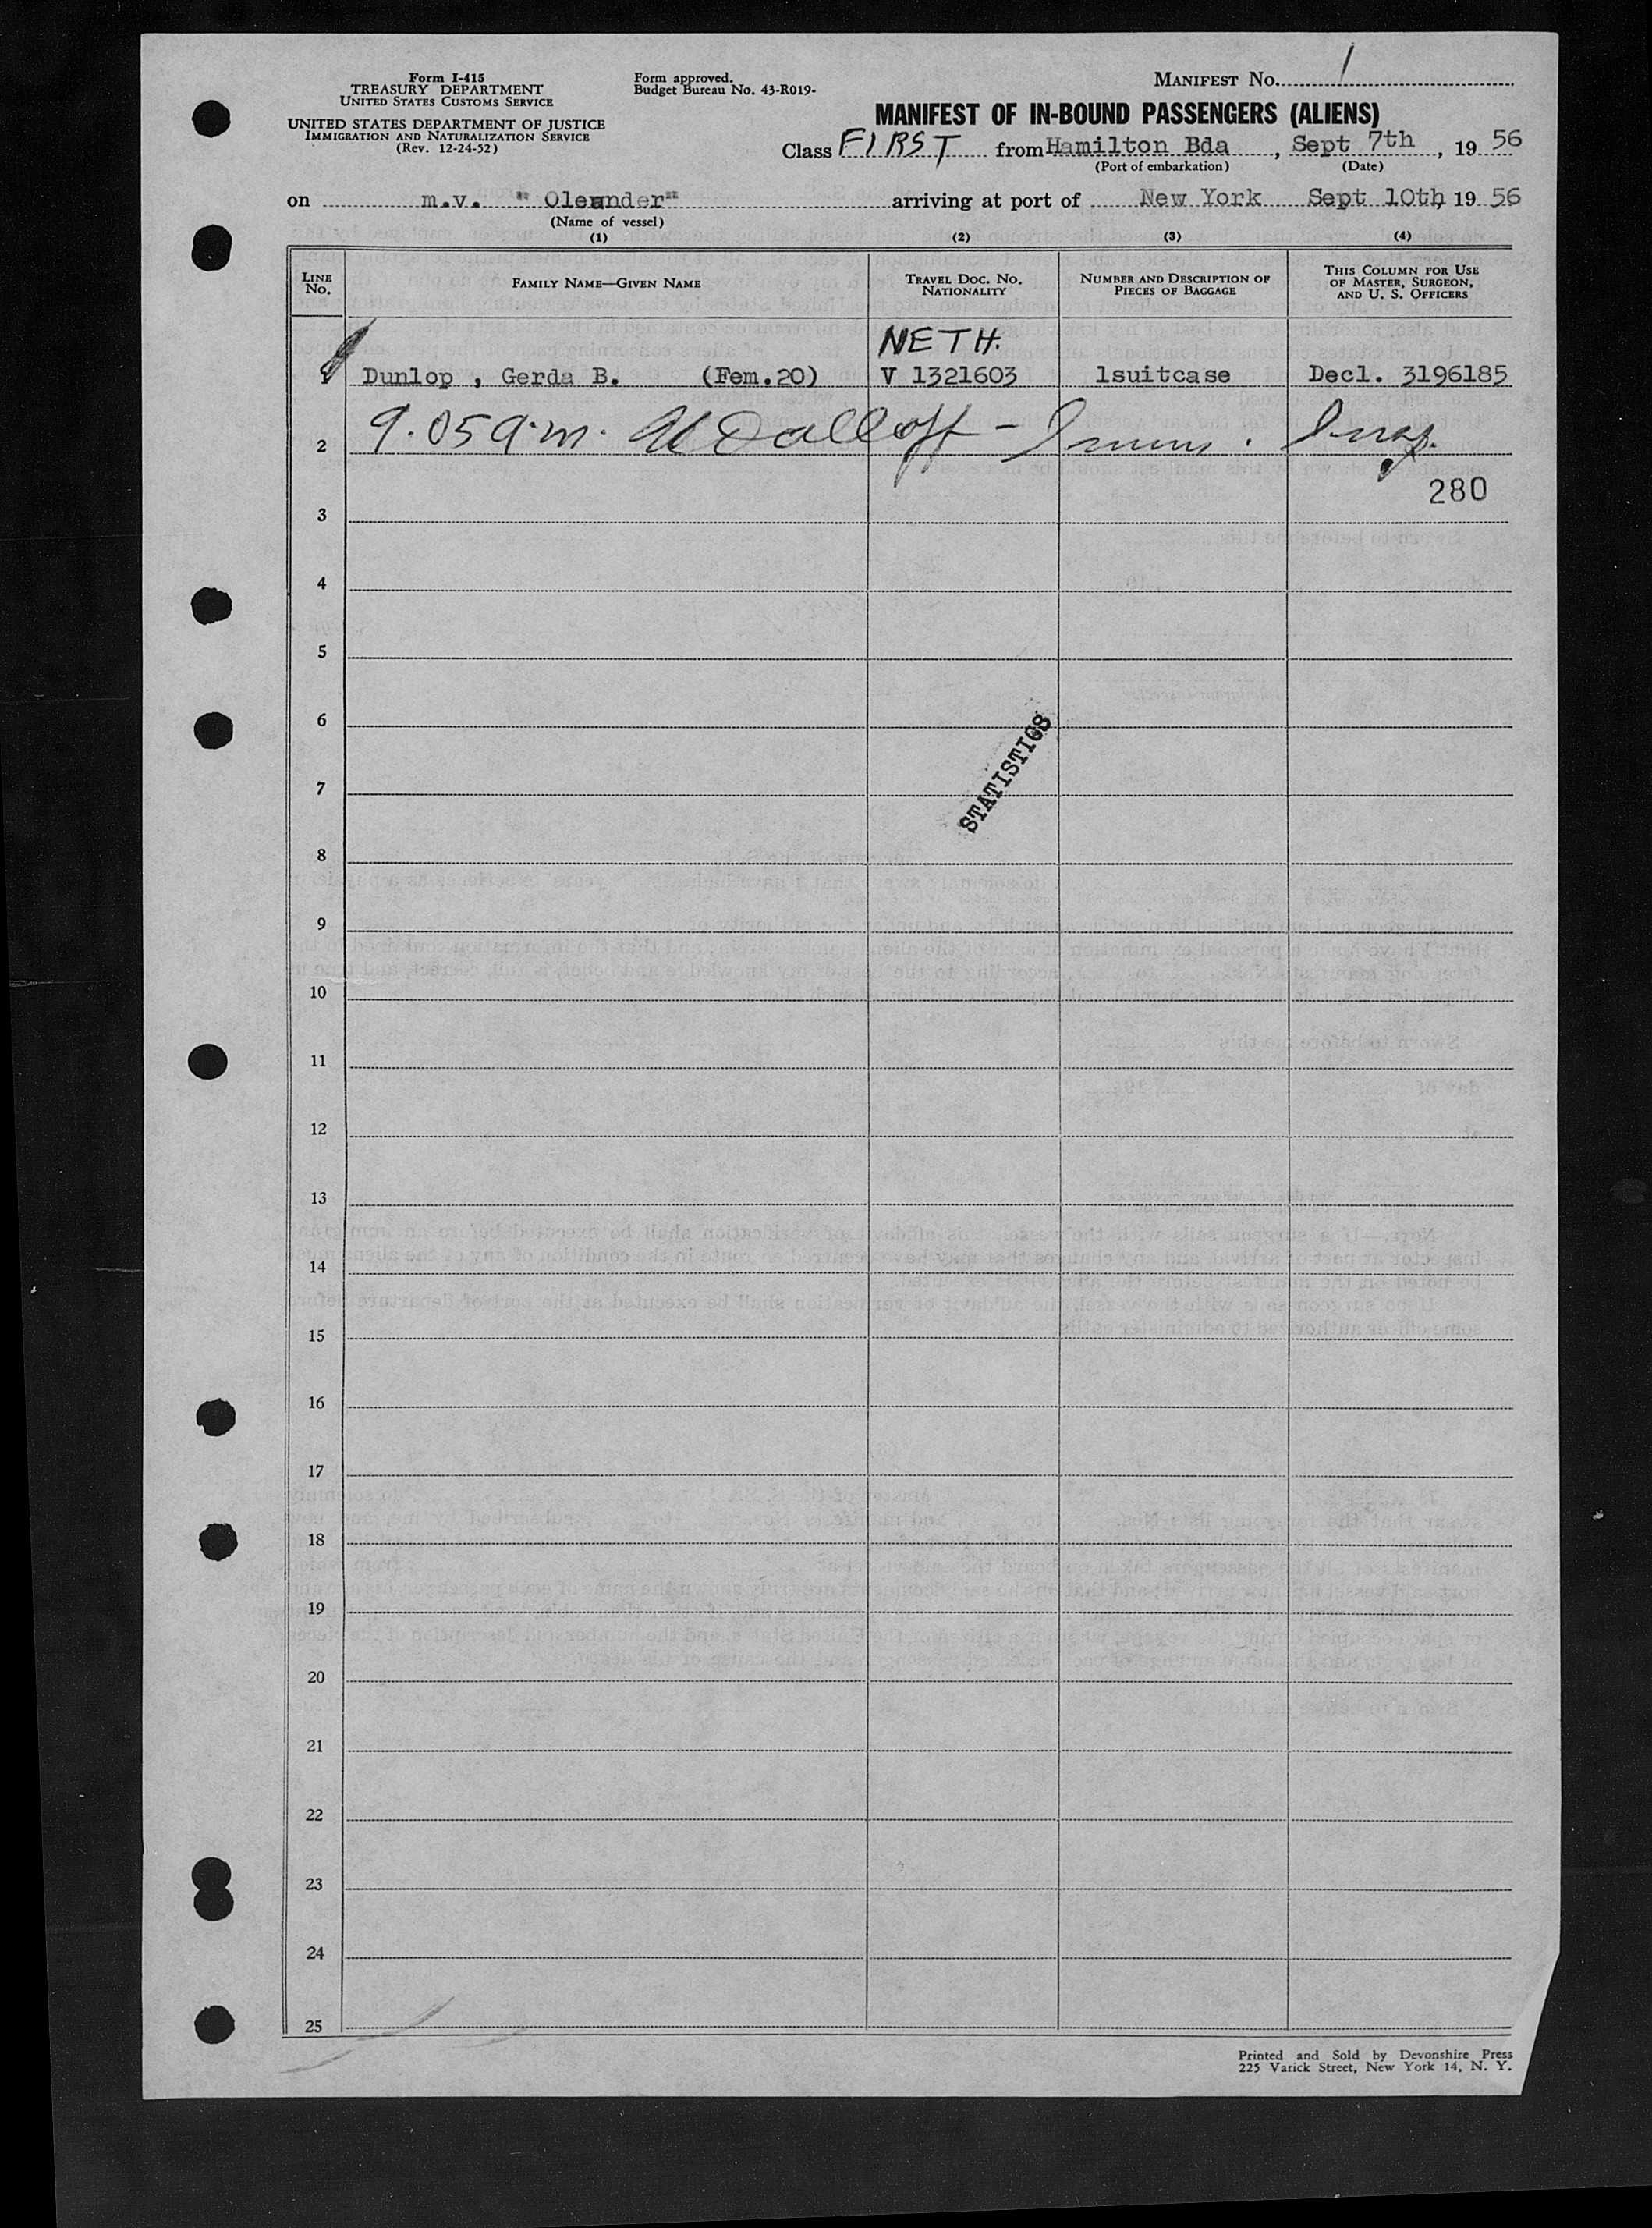 Form I-415
TREASURY DEPARTMENT
UNITED STATES CUSTOMS SERVICE
UNITED STATES DEPARTMENT OF JUSTICE
IMMIGRATION AND NATURALIZATION SERVICE
(Rev. 12-24-52)
Form approved.
Budget Bureau No. 43-R019-
MANIFEST NO. 1
MANIFEST OF IN-BOUND PASSENGERS (ALIENS)
Class FIRST from Hamilton Bda , Sept 7th , 19 56
(Port of embarkation) (Date)
on m.v. "Oleander" arriving at port of New York Sept 10th, 19 56
(Name of vessel)
(1) (2) (3) (4)
LINE NO. FAMILY NAME—GIVEN NAME TRAVEL DOC. NO. NATIONALITY NUMBER AND DESCRIPTION OF PIECES OF BAGGAGE THIS COLUMN FOR USE OF MASTER, SURGEON, AND U. S. OFFICERS
NETH.
1 Dunlop , Gerda B. (Fem.20) V 1321603 1suitcase Decl. 3196185
2 9.05 a.m. - Imm. Insp.
280
3
4
5
6
STATISTICS
7
8
9
10
11
12
13
14
15
16
17
18
19
20
21
22
23
24
25
Printed and Sold by Devonshire Press
225 Varick Street, New York 14, N. Y.